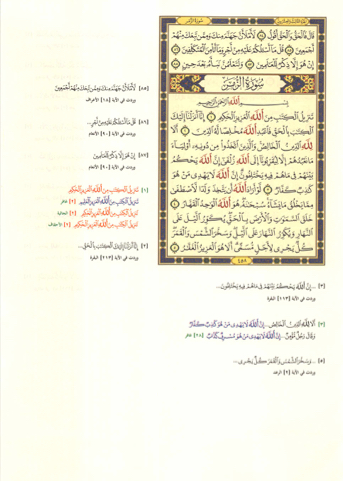 سورة الزمر
قَالَ فَالْحَقُّ وَالْحَقَّ أَقُولُ ﴿٨٤﴾ لَأَمْلَأَنَّ جَهَنَّمَ مِنكَ وَمِمَّن تَبِعَكَ مِنْهُمْ
أَجْمَعِينَ ﴿٨٥﴾ قُلْ مَا أَسْأَلُكُمْ عَلَيْهِ مِنْ أَجْرٍ وَمَا أَنَا مِنَ الْمُتَكَلِّفِينَ ﴿٨٦﴾
إِنْ هُوَ إِلَّا ذِكْرٌ لِّلْعَالَمِينَ ﴿٨٧﴾ وَلَتَعْلَمُنَّ نَبَأَهُ بَعْدَ حِينٍ ﴿٨٨﴾
سُورَةُ الزُّمَرِ
بِسْمِ اللَّهِ الرَّحْمَٰنِ الرَّحِيمِ
تَنزِيلُ الْكِتَابِ مِنَ اللَّهِ الْعَزِيزِ الْحَكِيمِ ﴿١﴾ إِنَّا أَنزَلْنَا إِلَيْكَ
الْكِتَابَ بِالْحَقِّ فَاعْبُدِ اللَّهَ مُخْلِصًا لَّهُ الدِّينَ ﴿٢﴾ أَلَا
لِلَّهِ الدِّينُ الْخَالِصُ وَالَّذِينَ اتَّخَذُوا مِن دُونِهِ أَوْلِيَاءَ
مَا نَعْبُدُهُمْ إِلَّا لِيُقَرِّبُونَا إِلَى اللَّهِ زُلْفَىٰ إِنَّ اللَّهَ يَحْكُمُ
بَيْنَهُمْ فِي مَا هُمْ فِيهِ يَخْتَلِفُونَ إِنَّ اللَّهَ لَا يَهْدِي مَنْ هُوَ
كَاذِبٌ كَفَّارٌ ﴿٣﴾ لَّوْ أَرَادَ اللَّهُ أَن يَتَّخِذَ وَلَدًا لَّاصْطَفَىٰ
مِمَّا يَخْلُقُ مَا يَشَاءُ سُبْحَانَهُ هُوَ اللَّهُ الْوَاحِدُ الْقَهَّارُ ﴿٤﴾
خَلَقَ السَّمَاوَاتِ وَالْأَرْضَ بِالْحَقِّ يُكَوِّرُ اللَّيْلَ عَلَى
النَّهَارِ وَيُكَوِّرُ النَّهَارَ عَلَى اللَّيْلِ وَسَخَّرَ الشَّمْسَ وَالْقَمَرَ
كُلٌّ يَجْرِي لِأَجَلٍ مُّسَمًّى أَلَا هُوَ الْعَزِيزُ الْغَفَّارُ ﴿٥﴾
٤٥٨
[٨٥] لَأَمْلَأَنَّ جَهَنَّمَ مِنكَ وَمِمَّن تَبِعَكَ مِنْهُمْ أَجْمَعِينَ
وردت في الآية [١٨] الأعراف
[٨٦] قُلْ مَا أَسْأَلُكُمْ عَلَيْهِ مِنْ أَجْرٍ...
وردت في الآية [٩٠] الأنعام
[٨٧] إِنْ هُوَ إِلَّا ذِكْرٌ لِّلْعَالَمِينَ
وردت في الآية [٩٠] الأنعام
[١] تَنزِيلُ الْكِتَابِ مِنَ اللَّهِ الْعَزِيزِ الْحَكِيمِ
تَنزِيلُ الْكِتَابِ مِنَ اللَّهِ الْعَزِيزِ الْعَلِيمِ [٢] غافر
تَنزِيلُ الْكِتَابِ مِنَ اللَّهِ الْعَزِيزِ الْحَكِيمِ [٢] الجاثية
تَنزِيلُ الْكِتَابِ مِنَ اللَّهِ الْعَزِيزِ الْحَكِيمِ [٢] الأحقاف
[٢] إِنَّا أَنزَلْنَا إِلَيْكَ الْكِتَابَ بِالْحَقِّ...
وردت في الآية [٢١٣] البقرة
[٣] ...إِنَّ اللَّهَ يَحْكُمُ بَيْنَهُمْ فِي مَا هُمْ فِيهِ يَخْتَلِفُونَ...
وردت في الآية [١١٣] البقرة
[٣] أَلَا لِلَّهِ الدِّينُ الْخَالِصُ...إِنَّ اللَّهَ لَا يَهْدِي مَنْ هُوَ كَاذِبٌ كَفَّارٌ
وَقَالَ رَجُلٌ مُّؤْمِنٌ...إِنَّ اللَّهَ لَا يَهْدِي مَنْ هُوَ مُسْرِفٌ كَذَّابٌ [٢٨] غافر
[٥] ...وَسَخَّرَ الشَّمْسَ وَالْقَمَرَ كُلٌّ يَجْرِي...
وردت في الآية [٢] الرعد